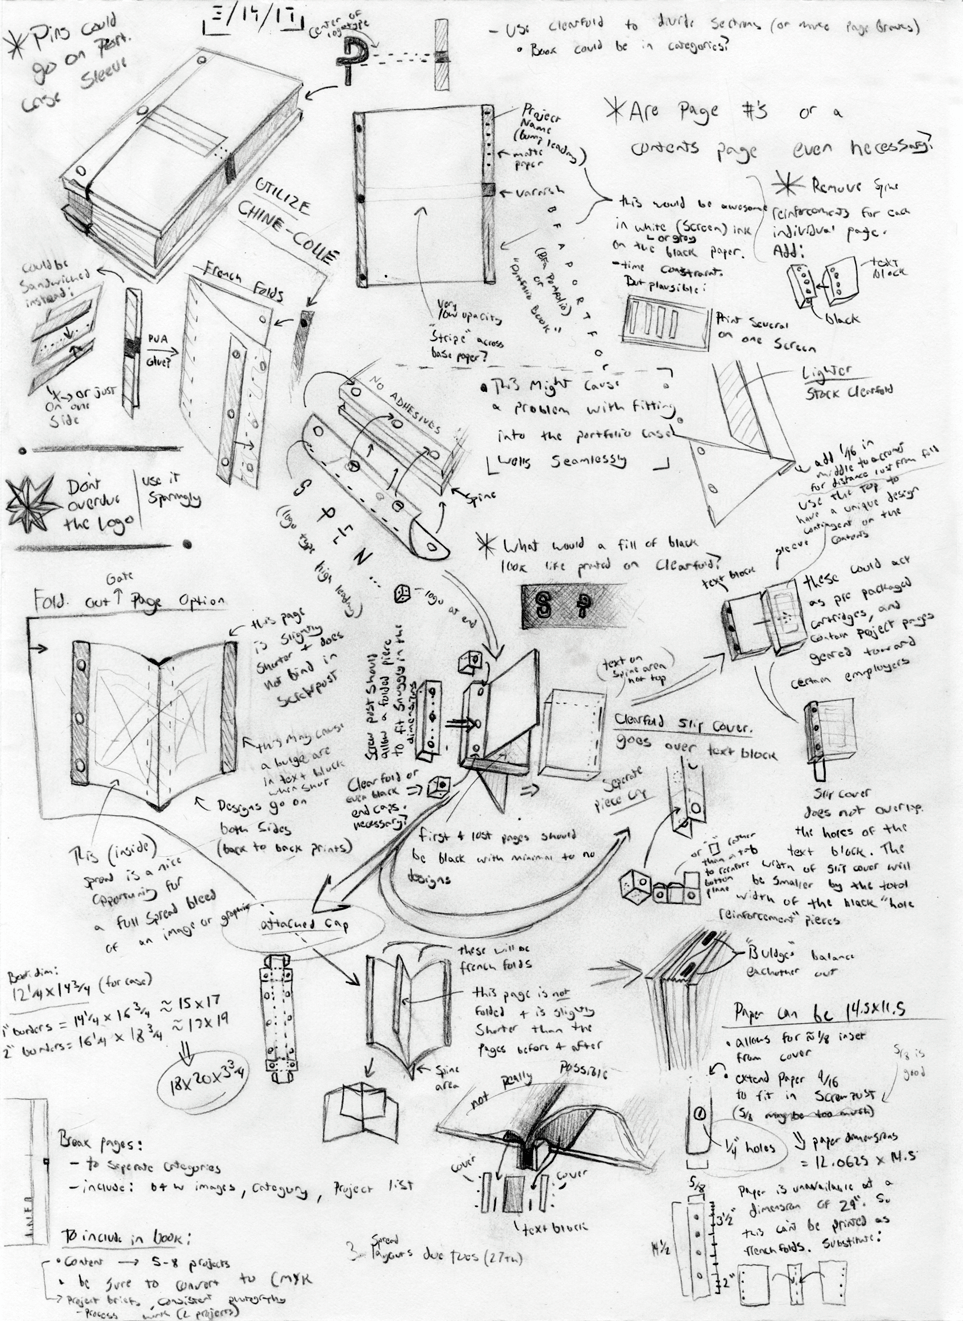 3/14/17
* Pins could
go on Port.
case Sleeve
Center of
logotype
- Use clearfold to divide sections (or make Page Breaks)
• Book could be in categories?
* Are Page #'s or a
contents page even necessary?
Project
Name
(Bump leading)
matte
paper
varnish
UTILIZE
CHINE-COLLÉ
this would be awesome
in white (screen) ink
or gray
on the black paper.
- time constraint.
But plausible:
Print Several
on one Screen
* Remove Spine
reinforcements for each
individual page.
Add:
text
block
black
could be
Sandwiched
instead:
PVA
Glue?
or just
on one
Side
French Folds
Very
low opacity
"Stripe" across
base paper?
BFA PORTFO
(BFA Portfolio)
or
"Portfolio Book"
NO ADHESIVES
Spine
SPLN...
(logo type
high leading)
• This Might Cause
a problem with fitting
into the portfolio case
walls Seamlessly
Lighter
Stock Clearfold
add 1/16 in
middle to account
for distance lost from fold
Use the top to
have a unique design
contingent on the
contents
Don't
overdue
the logo
use it
Sparingly
* What would a fill of black
look like printed on Clearfold?
- logo at end
text block
sleeve
these could act
as pre packaged
cartridges, and
contain project pages
geared toward
certain employers
Gate
Fold out Page Option
this page
is slightly
shorter + does
not bind in
screwpost
this may cause
a bulge are
in text block
when shut
Designs go on
both Sides
(back to back prints)
This (inside)
spread is a nice
opportunity for
a full Spread bleed
of an image or graphic
Screw post should
allow a folded piece
to fit snuggly in the
dimensions
Clearfold or
even black
end caps.
necessary?
(text on
Spine area
not top)
Clearfold Slip Cover.
goes over text block
first + last pages should
be black with minimal to no
designs
Seperate
piece cap
Slip cover
does not overlap
the holes of the
text block. The
width of slip cover will
be smaller by the total
width of the black "hole
reinforcement" pieces
attached cap
Book dim:
12 1/4 x 14 3/4 (for case)
1" borders = 14 1/4 x 16 3/4 ≈ 15 x 17
2" borders = 16 1/4 x 18 3/4 ≈ 17 x 19
18x20x3 3/4
these will be
french folds
this page is not
folded + is slightly
Shorter than the
Pages before + after
Spine
area
"Buldges" balance
eachother out
Paper can be 14.5x11.5
• allows for ≈ 1/8 inset
from cover
• extend Paper 9/16
to fit in Screwpost
(5/8 may be too much)
5/8 is
good
1/4" holes
paper dimensions
= 12.0625 x 14.5
not really possible
cover
cover
text block
Break pages:
- to Seperate Categories
- include: b+w images, Category, Project list
To include in book:
• Content → 5-8 projects
• be sure to convert to CMYK
Project briefs, consistent photography
- Process work (2 projects)
3 Spread
layours due tues (27th)
5/8
3 1/2"
14 1/2
2"
Paper is unavailable at a
dimension of 29". So
this can't be printed as
frenchfolds. Substitute: